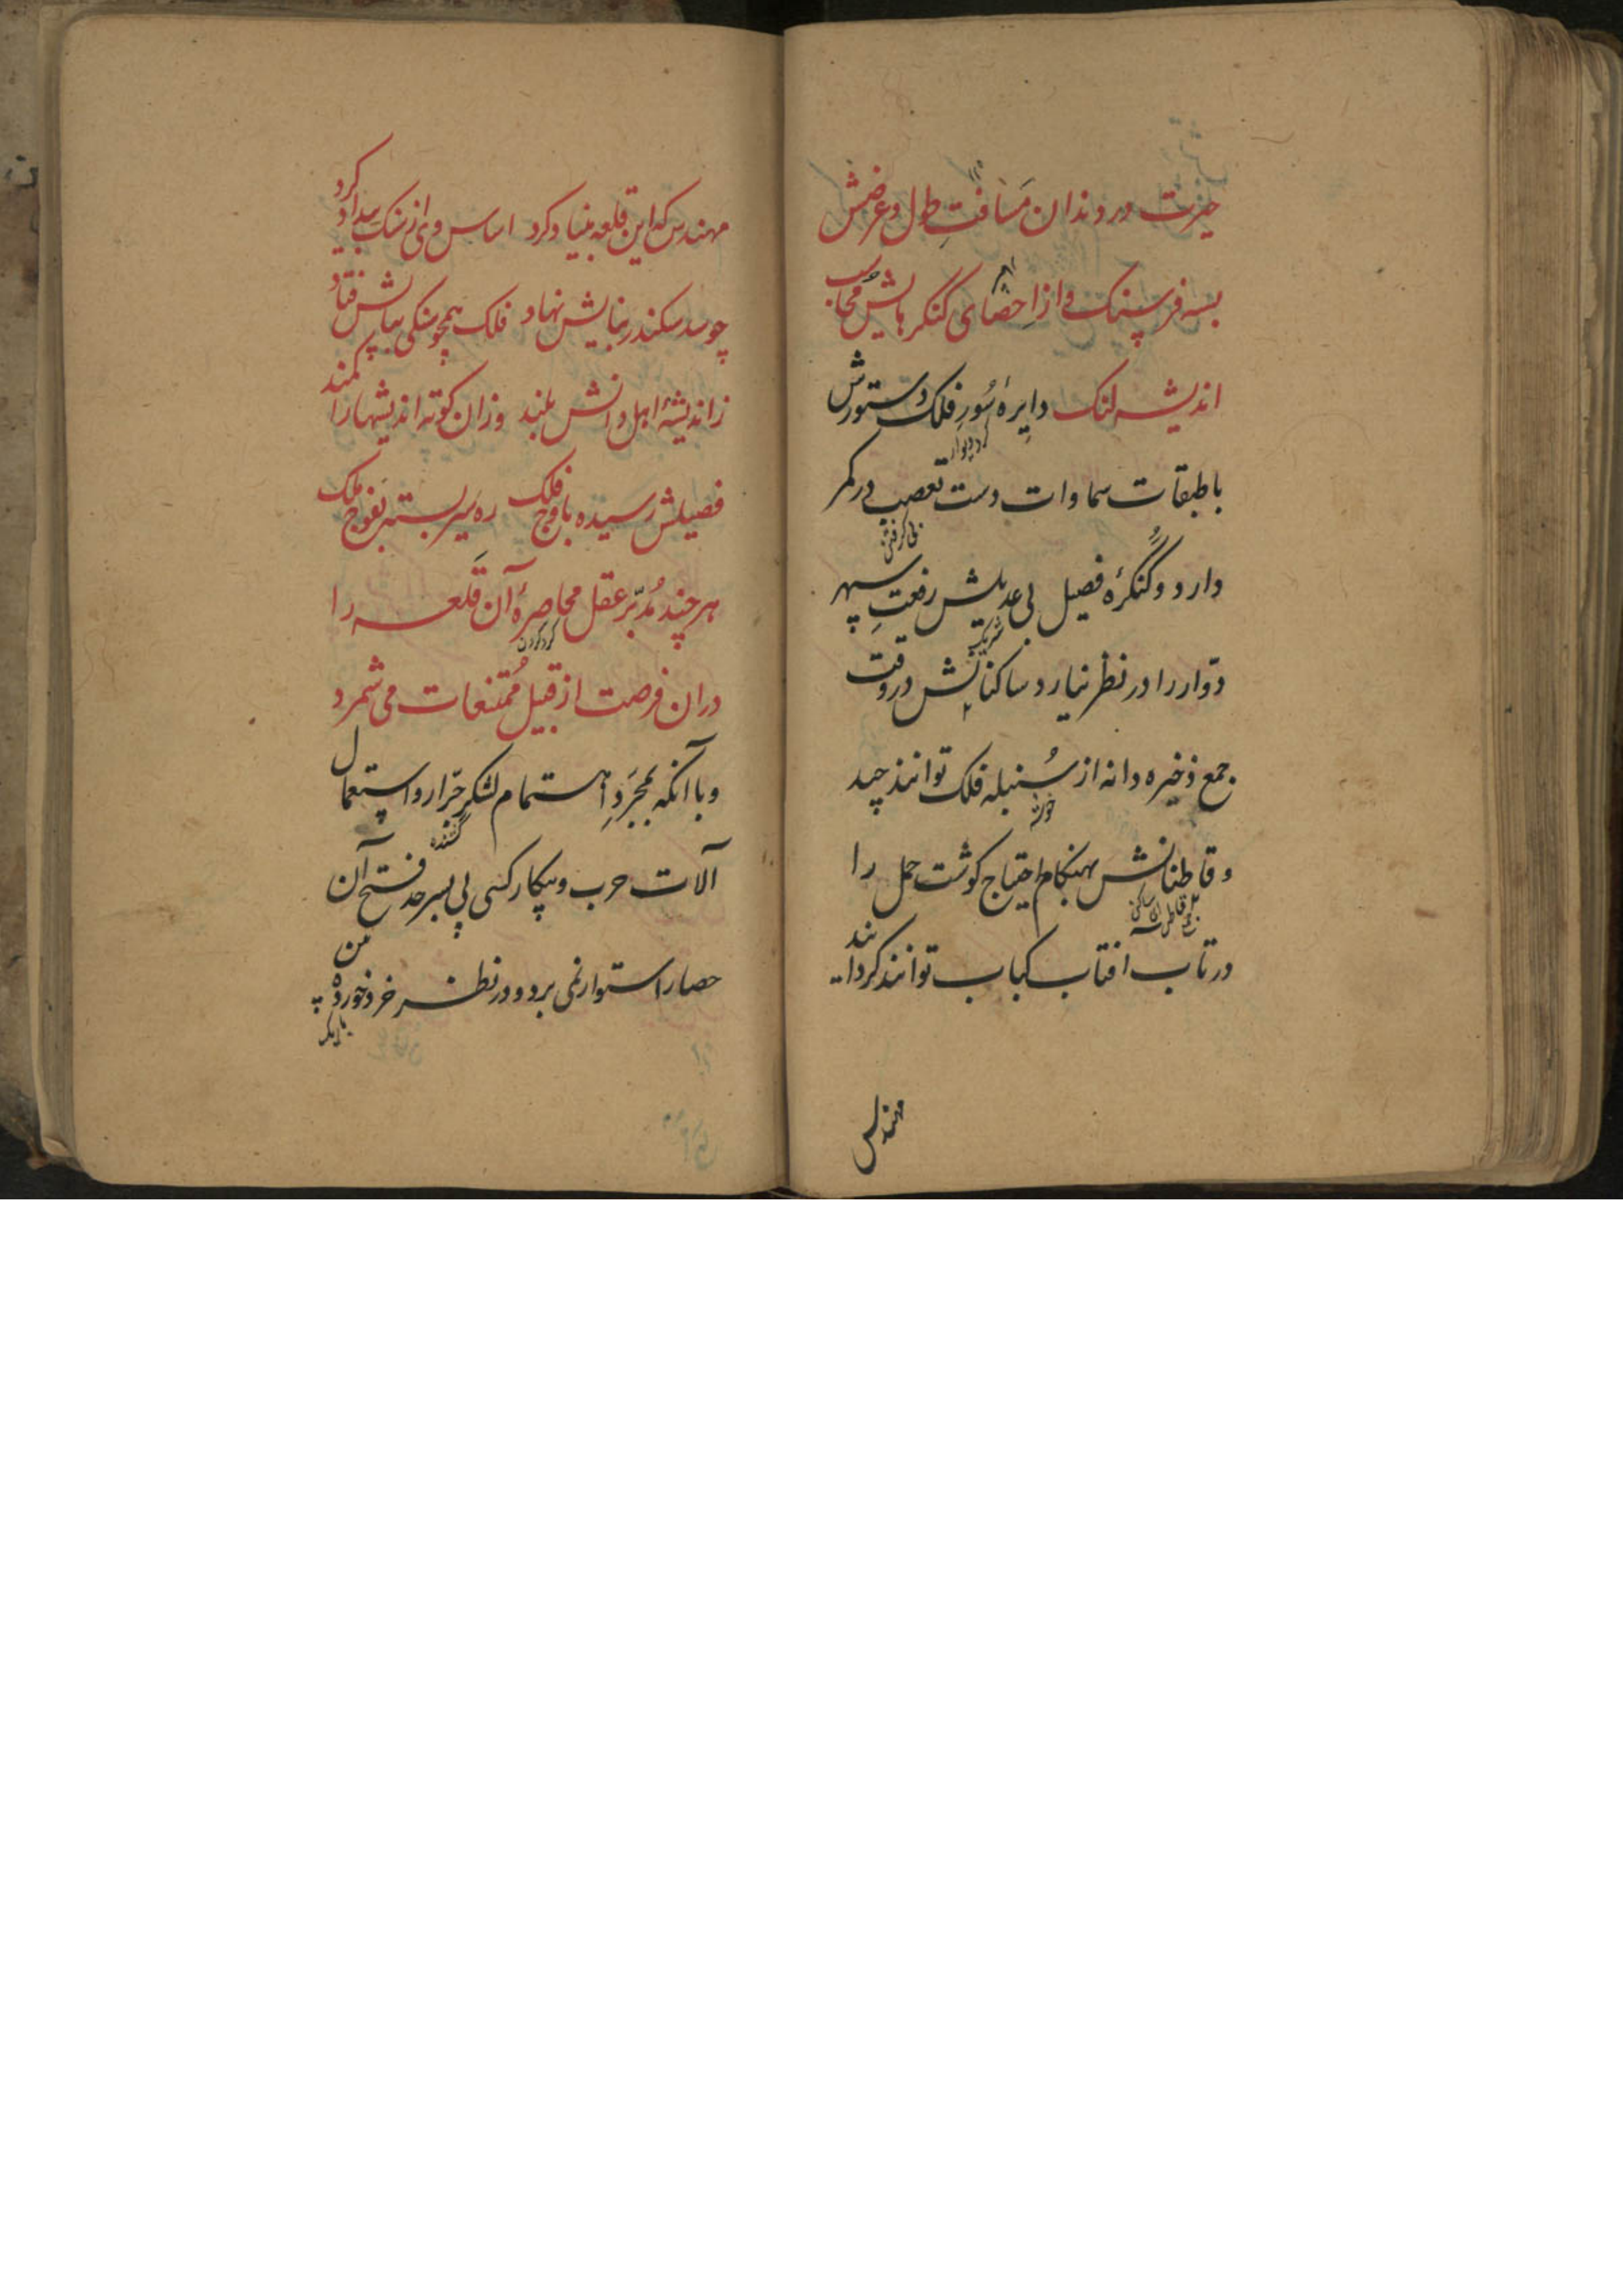 حیرت در دندان مسافتِ طول و عرضش
بسه فرسنک و از احصای کنکرهایش محاسب
اندیشه لنک دایرهٔ سُورِ فلک دستورش
کرد دیوار
با طبقات سماوات دست تعصب در کمر
دارد و کنکرهٔ فصیل بی عدیلش رفعتِ سپهر
شریک
دوّار را در نظر نیارد ساکنانش در وقت
جمع ذخیره دانه از سُنبله فلک توانند چید
خوشه
و قاطنانش بهنکام احتیاج کوشت حمل را
در تاب افتاب کباب توانند کردانید
مهندس
مهندس که این قلعه بنیاد کرد اساس وی از سنک بیداد کرد
چو سد سکندر بنایش نهاد فلک همچو سنکی بپایش فتاد
ز اندیشهٔ اهل دانش بلند وزان کوته اندیشها را کمند
فصیلش رسیده باوج فلک ره سیر بسته بفوج ملک
هر چند مُدبّر عقل محاصرهٔ آن قلعه را
کرد کردن
دران فرصت از قبیل مُمتنعات می شمرد
و با آنکه بمجرّدِ اهتمام لشکرِ جرّار و استعمال
کشنده
آلات حرب و پیکار کسی پی بسرحد فتح آن
حصار استوار نمی برد و در نظر خرد خورده بین
باریک